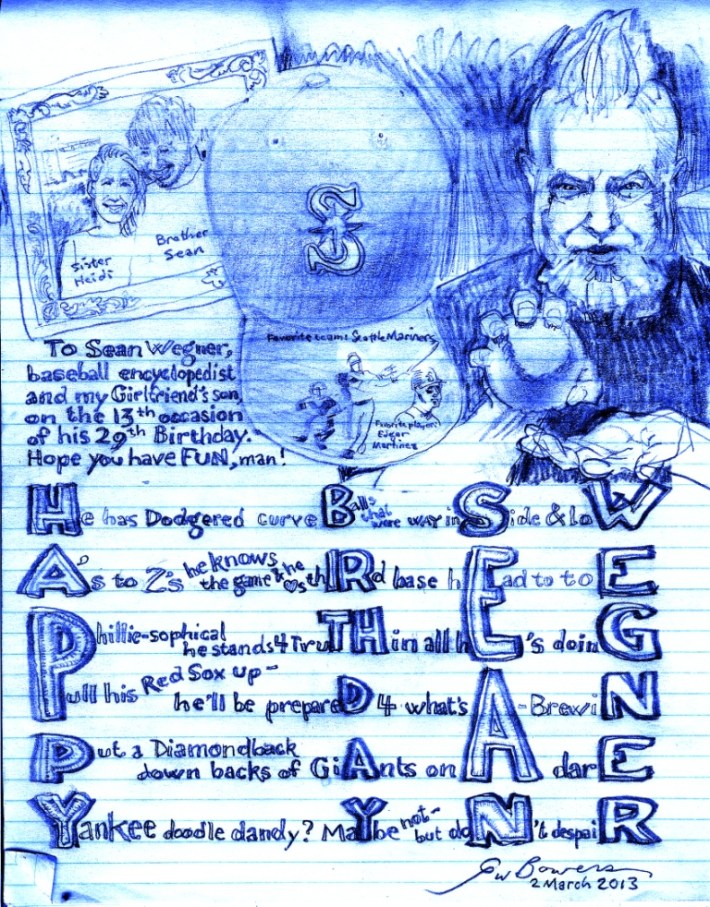 Sister
Heidi
Brother
Sean
S
Favorite team: Seattle Mariners
Favorite player:
Edgar
Martinez
To Sean Wegner,
baseball encyclopedist
and my Girlfriend's son,
on the 13th occasion
of his 29th Birthday.
Hope you have FUN, man!
He has Dodgered curve Balls that were WAY in Side & loW
A's to Z's he knows the game & he ♥s thIRd base hEad to toE
Phillie-sophical he stands 4 TruTH in all hE's doinG
Pull his Red Sox up- he'll be prepareD 4 what's A-BrewiN
Put a Diamondback down backs of GiAnts on A darE
Yankee doodle dandy? MaYbe not- but doN't despaiR
GW Bowers
2 March 2013